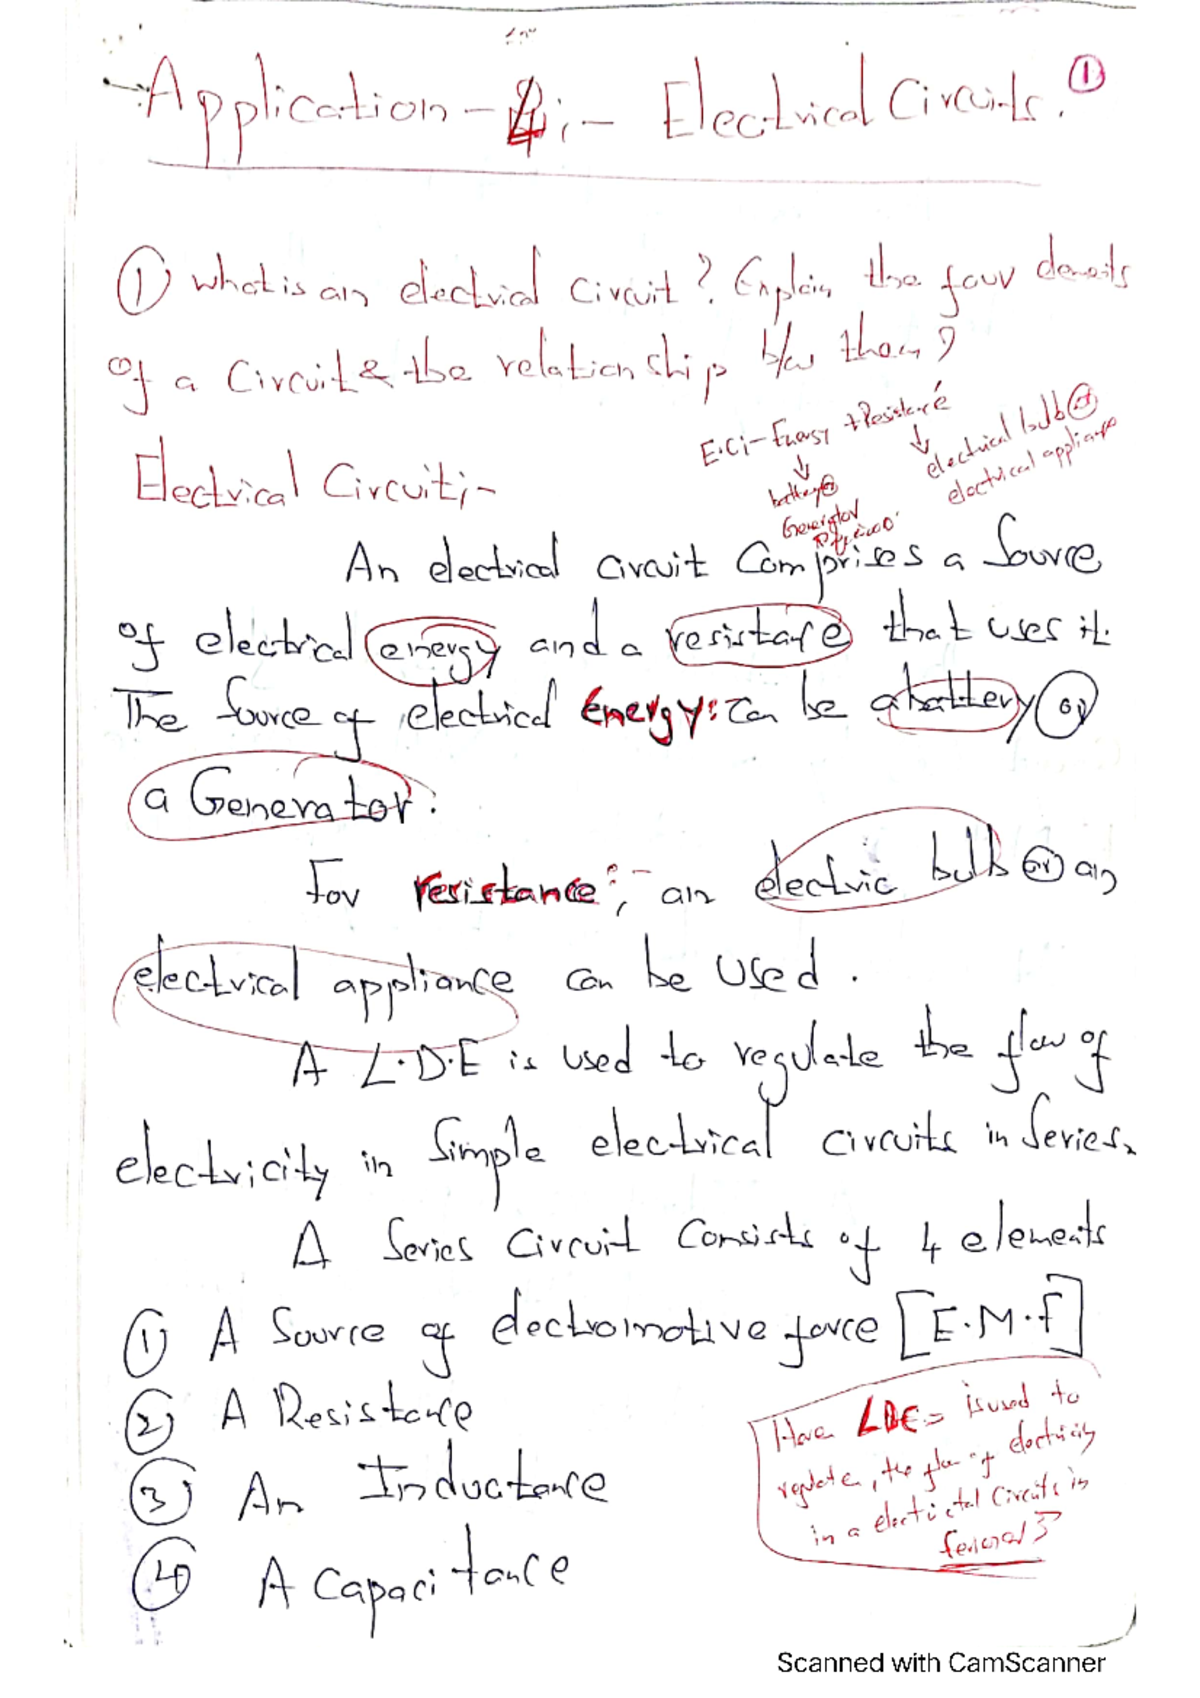 Application - 4 :- Electrical Circuits. ①
① What is an electrical circuit? Explain the four elements
of a circuit & the relationship b/w them?
E.C:- Energy + Resistance
↓ ↓
battery or electrical bulb or
Generator electrical appliance
Electrical Circuit:-
An electrical circuit Comprises a Source
of electrical energy and a resistance that uses it.
The Source of electrical Energy: Can be a battery or
a Generator.
For resistance:- an electric bulb or an
electrical appliance can be used.
A L.D.E is used to regulate the flow of
electricity in Simple electrical circuits in Series.
A Series Circuit Consists of 4 elements
① A Source of electromotive force [E.M.F]
② A Resistance
③ An Inductance
④ A Capacitance
Here LDE = is used to
regulate, the flow of electricity
in a electrical Circuits in
Scanned with CamScanner